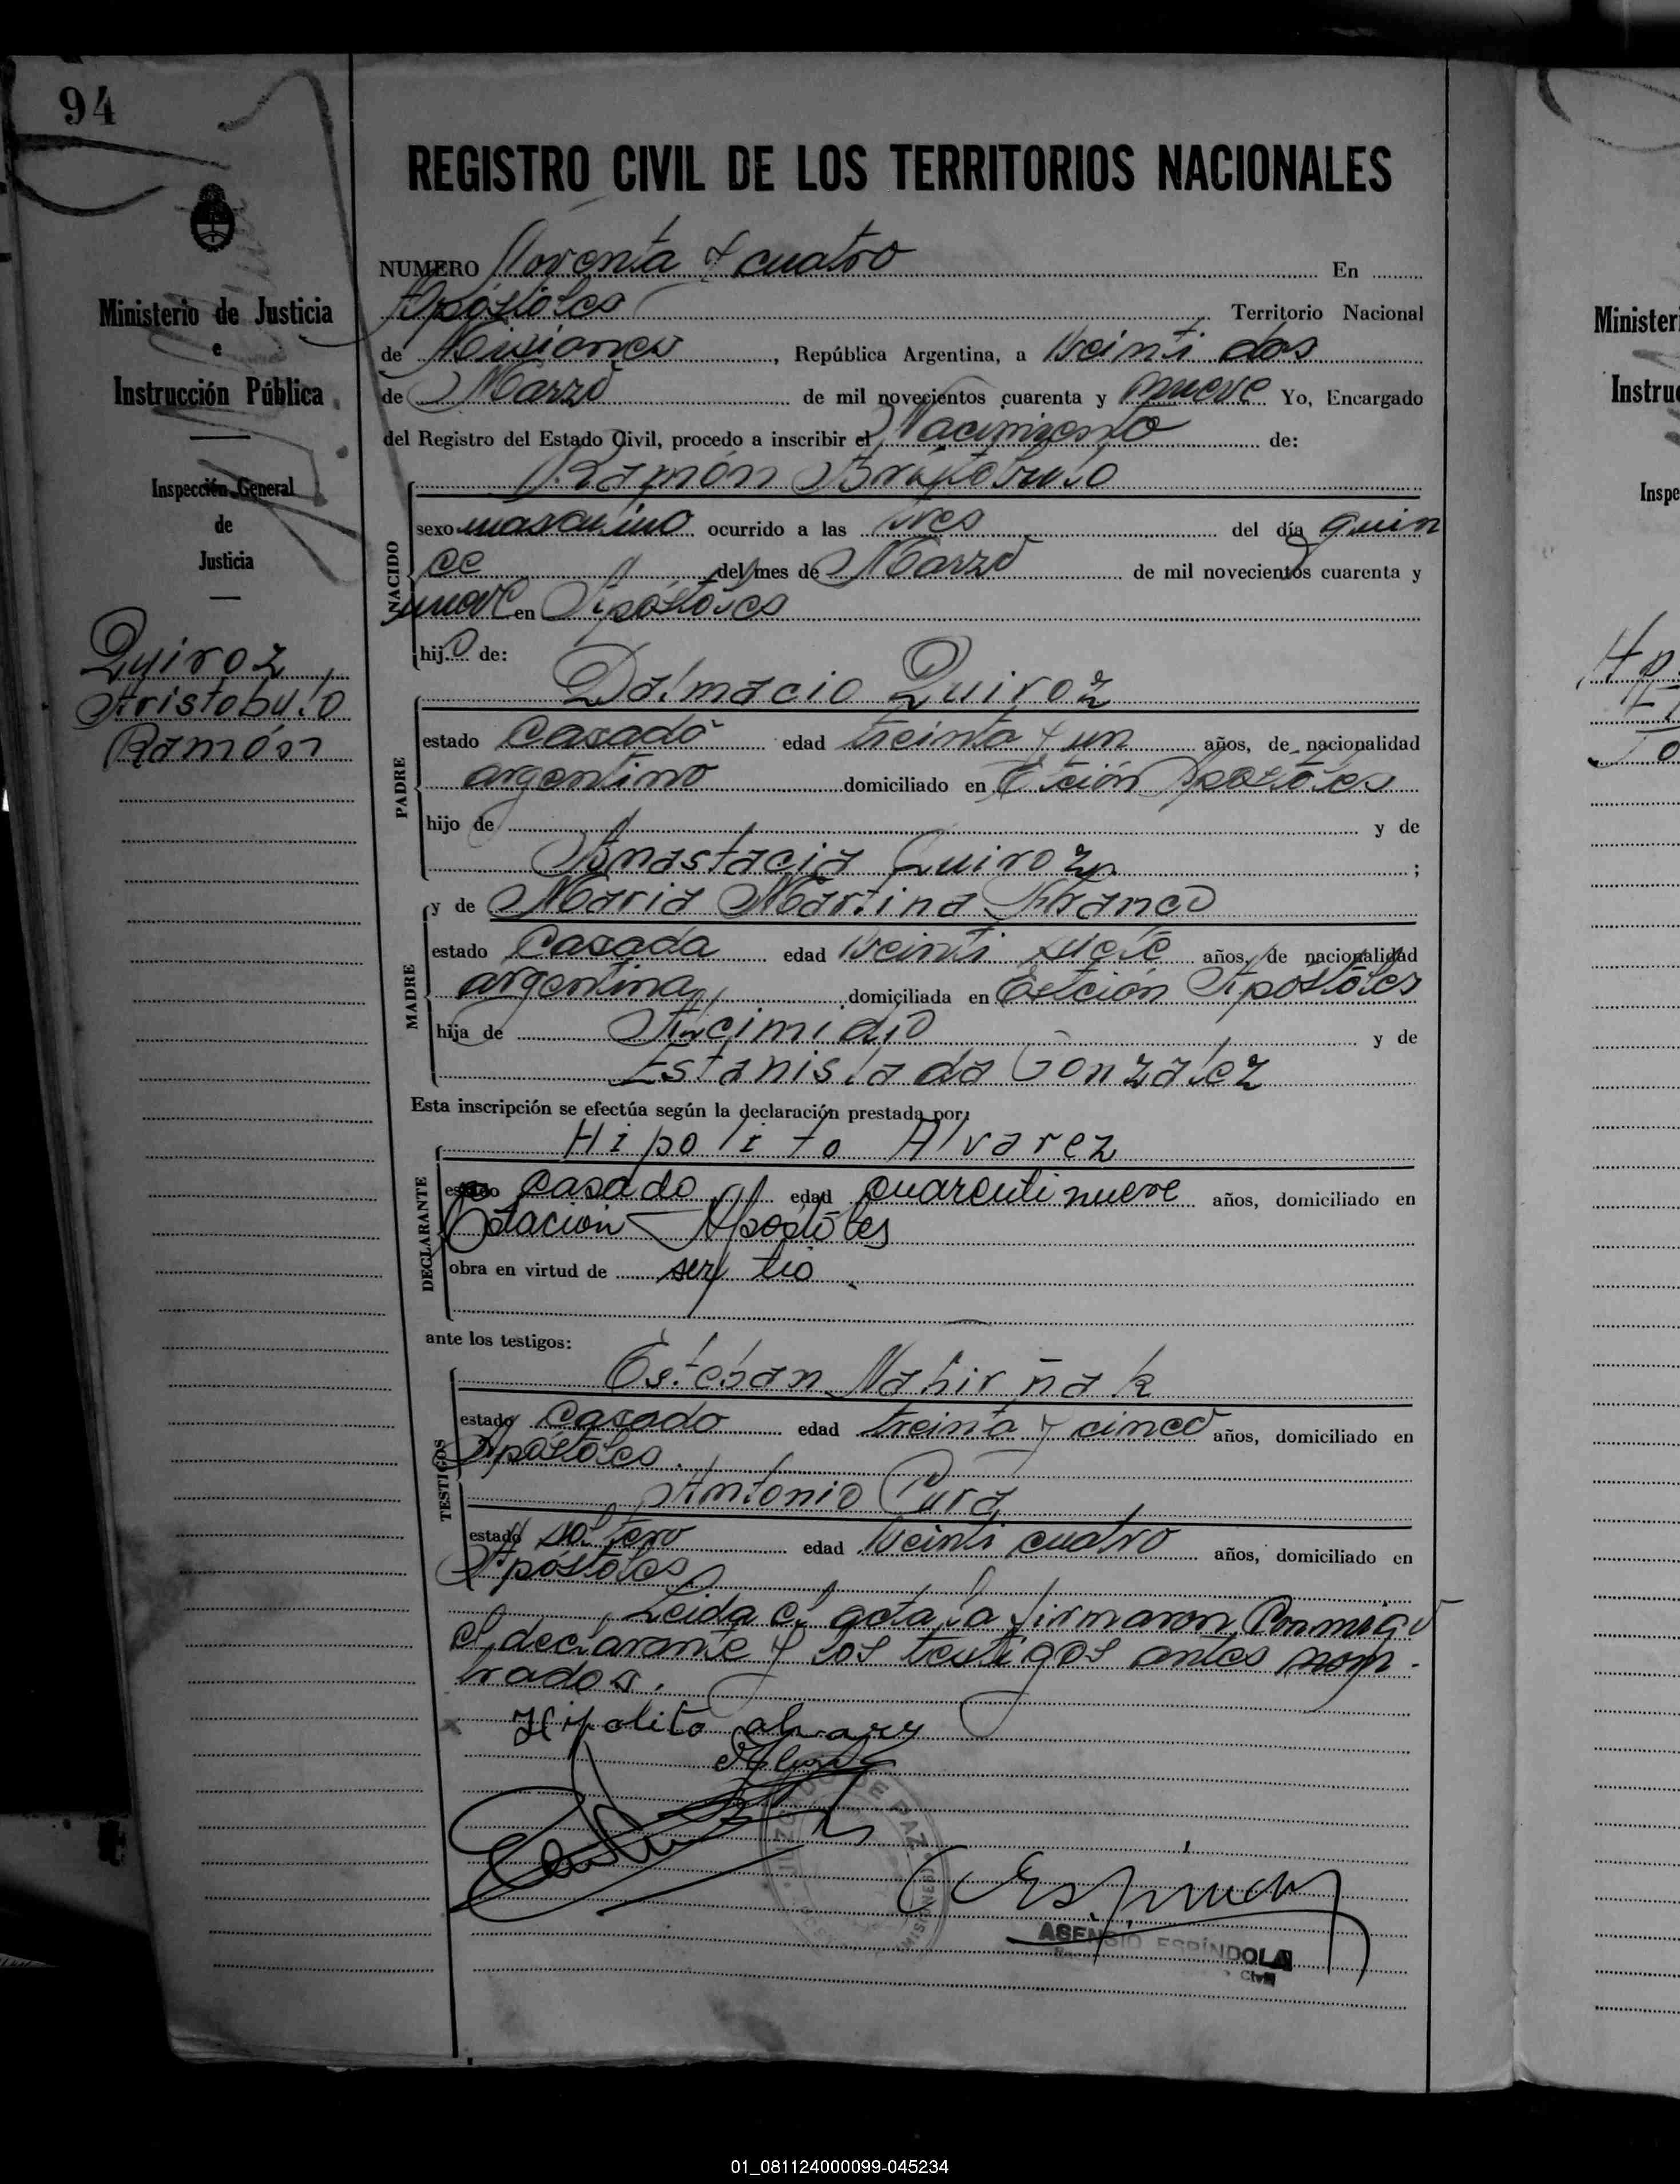 94
REGISTRO CIVIL DE LOS TERRITORIOS NACIONALES
NUMERO Noventa y cuatro En
Apóstoles Territorio Nacional
de Misiones, República Argentina, a Veinti dos
de Marzo de mil novecientos cuarenta y nueve Yo, Encargado
del Registro del Estado Civil, procedo a inscribir el Nacimiento de:
Ramón
NACIDO
sexo masculino ocurrido a las tres del día quin
ce del mes de Marzo de mil novecientos cuarenta y
nueve en Apóstoles
hijo de:
Dalmacio Quiroz
PADRE
estado Casado edad treinta y un años, de nacionalidad
argentino domiciliado en Etción Apostoles
hijo de y de
Anastacia Quiroz ;
y de Maria Martina Franco
MADRE
estado Casada edad Veinti siete años, de nacionalidad
argentina domiciliada en Estción Apóstoles
hija de y de
Estanislada Gonzalez
Esta inscripción se efectúa según la declaración prestada por:
Hipolito Alvarez
DECLARANTE
estado casado edad cuarenti nueve años, domiciliado en
Estacion Apostoles
obra en virtud de ser tio
ante los testigos:
Esteban Nahirñak
TESTIGOS
estado Casado edad treinta y cinco años, domiciliado en
Apóstoles.
Antonio Cura
estado soltero edad Veinti cuatro años, domiciliado en
Apóstoles
Leida el acta la firmaron Conmigo
el declarante y los testigos antes nom-
brados.
x Hipolito alvarez
DE PAZ
MISIONES
ASENSIO ESPÍNDOLA
Civil
Ministerio de Justicia
e
Instrucción Pública
Inspección General
de
Justicia
Quiroz
Aristobulo
Ramón
Minister
Instruc
Inspe
01_081124000099-045234